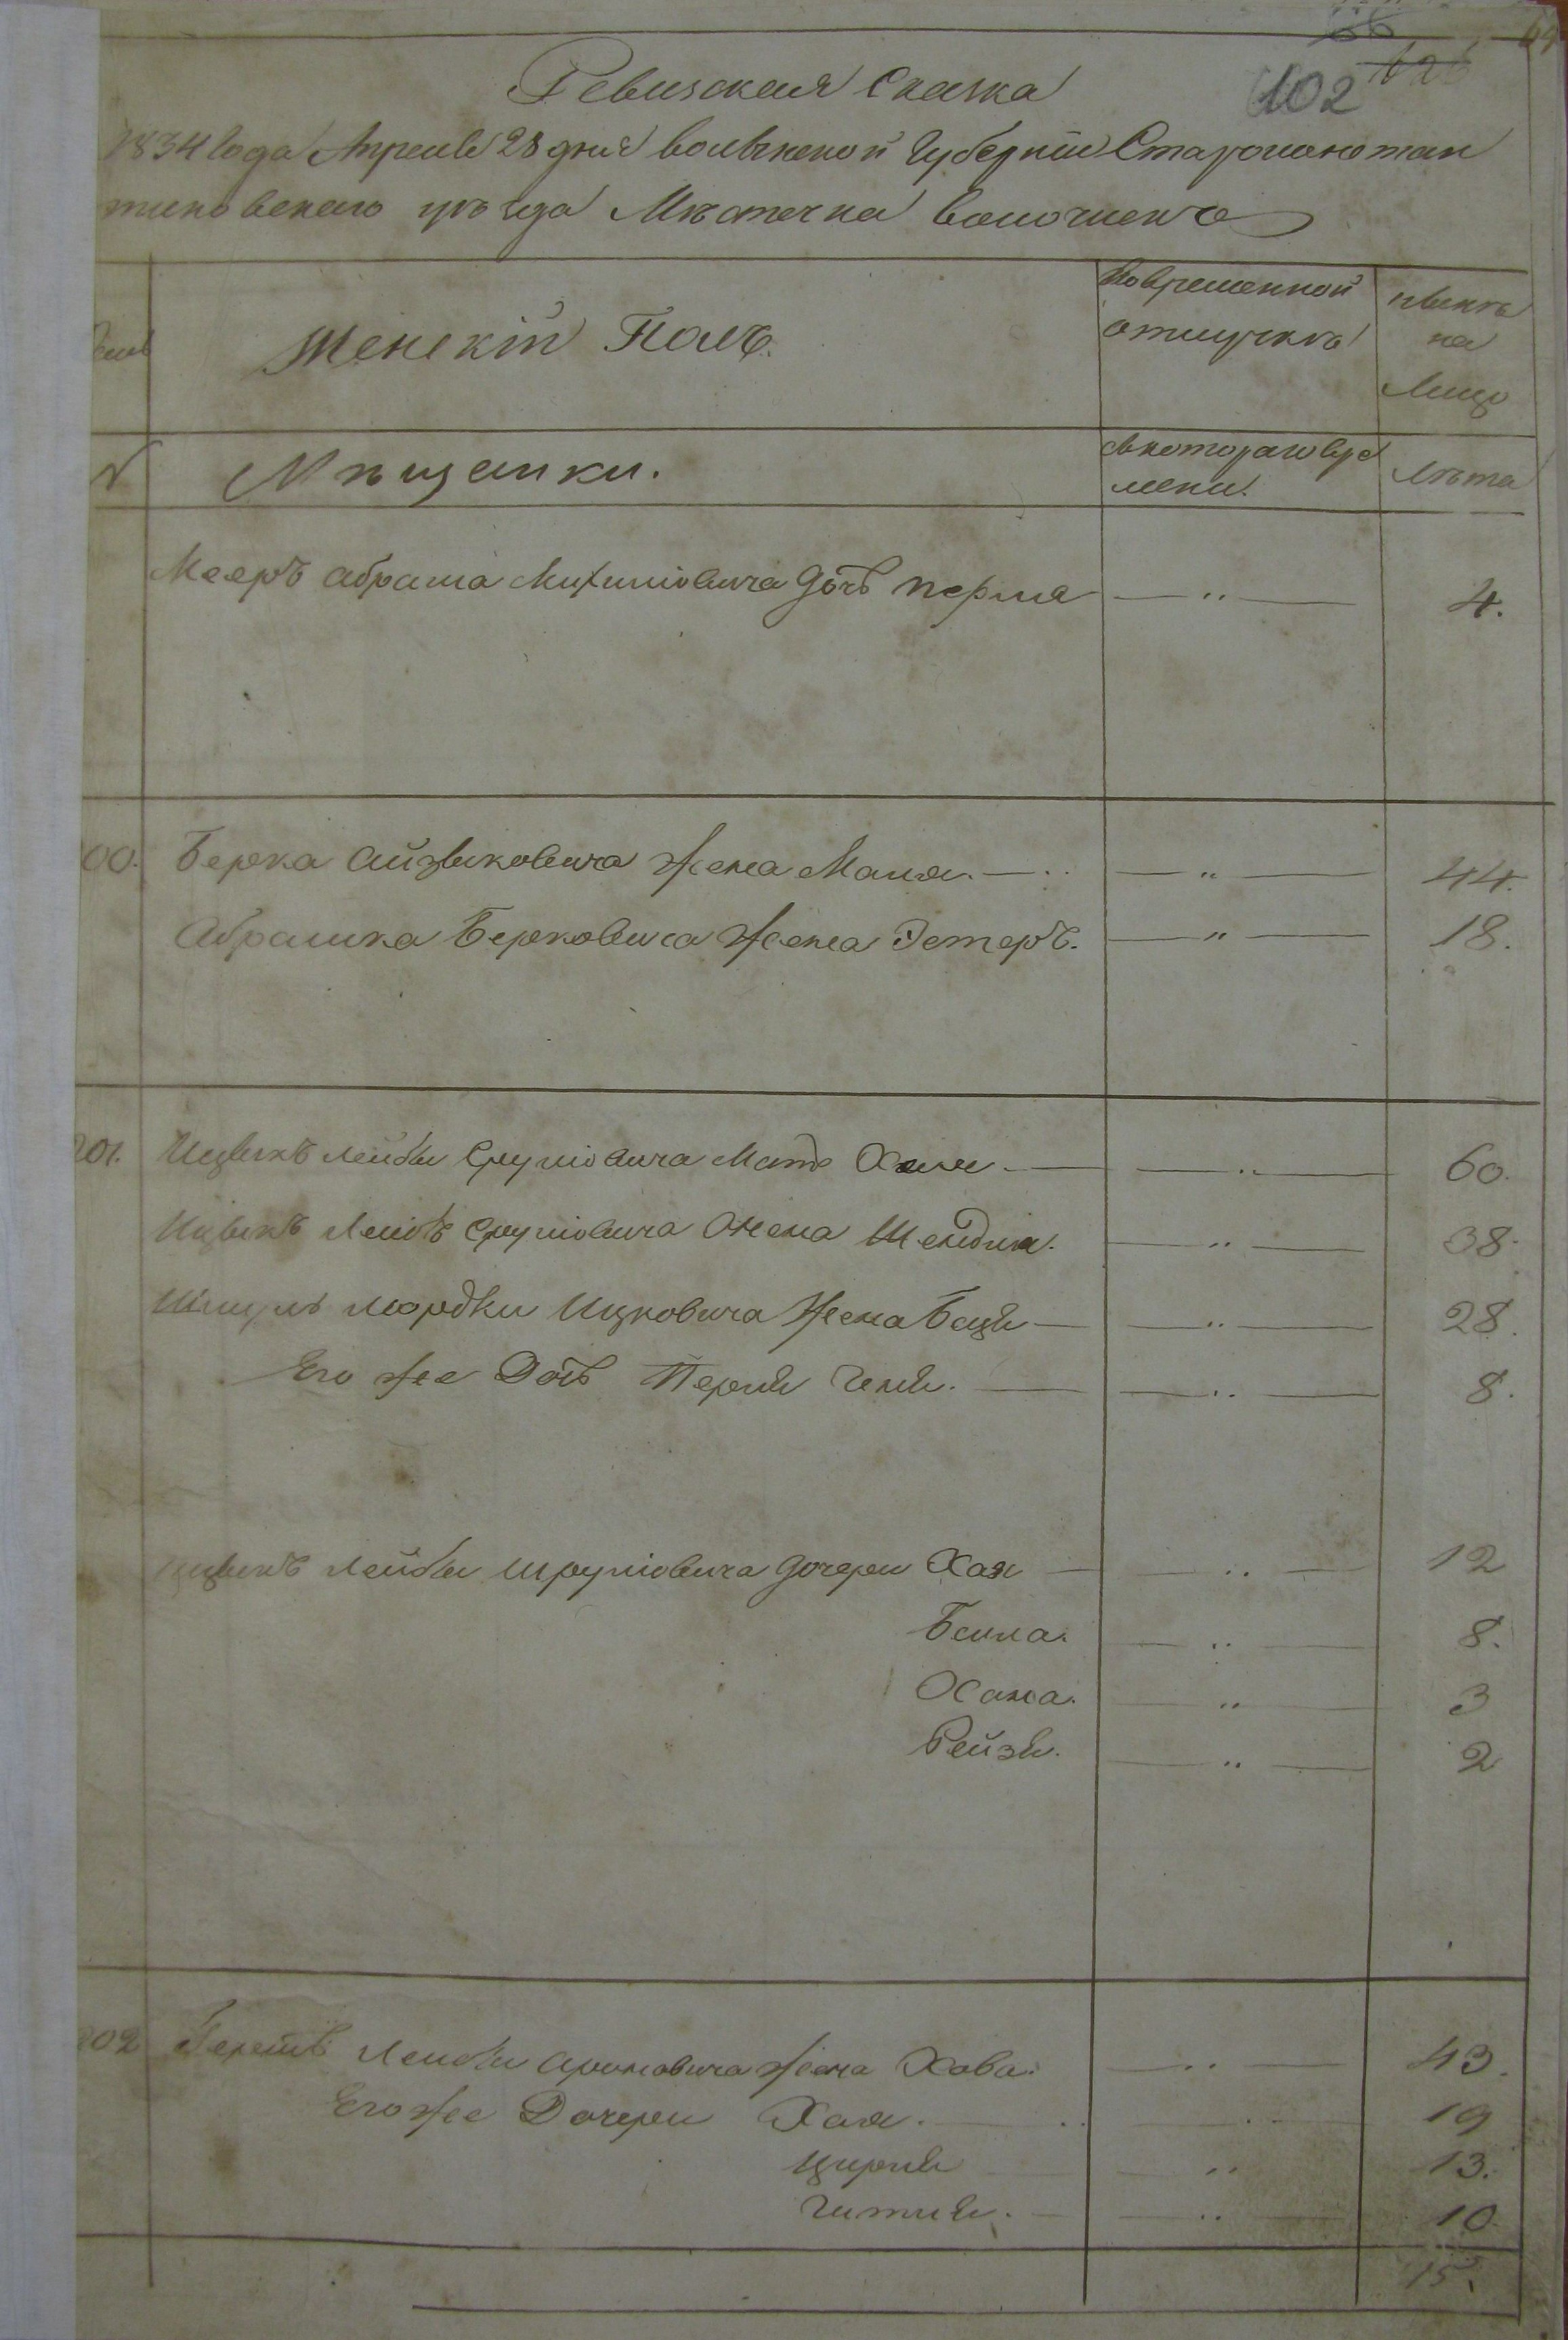 102
Ревизская Сказка
1834 Года Апреля 28 дня волынской Губернии Староконстан
тиновского уѣзда Мѣстечка волочиска
Женскій Полъ.
во временной отлучкѣ
нынѣ на Лицо
Мѣщанки.
съ котораго вре мени.
Лѣта
Мееръ абрама дочь перля 4.
00. Берка айзыковича жена Маля. 44.
абрамка Берковича жена Эстеръ. 18.
201. Ицыкъ лейбы Срулiовича Мать 60.
Ицыкъ Лейбъ Срулiовича жена Шендля. 38.
Шмуль мордки Ицковича жена 28.
Его же Дочь Перля 8.
Ицыкъ Лейбы Шрулiовича дочери Хая 12
Бейла. 8.
Хана. 3
Рейзя. 2
202 Лейбы ароновича жена Хова. 43.
Его же Дочери Хая. 19
Цирля 13.
Гитля. 10.
15.